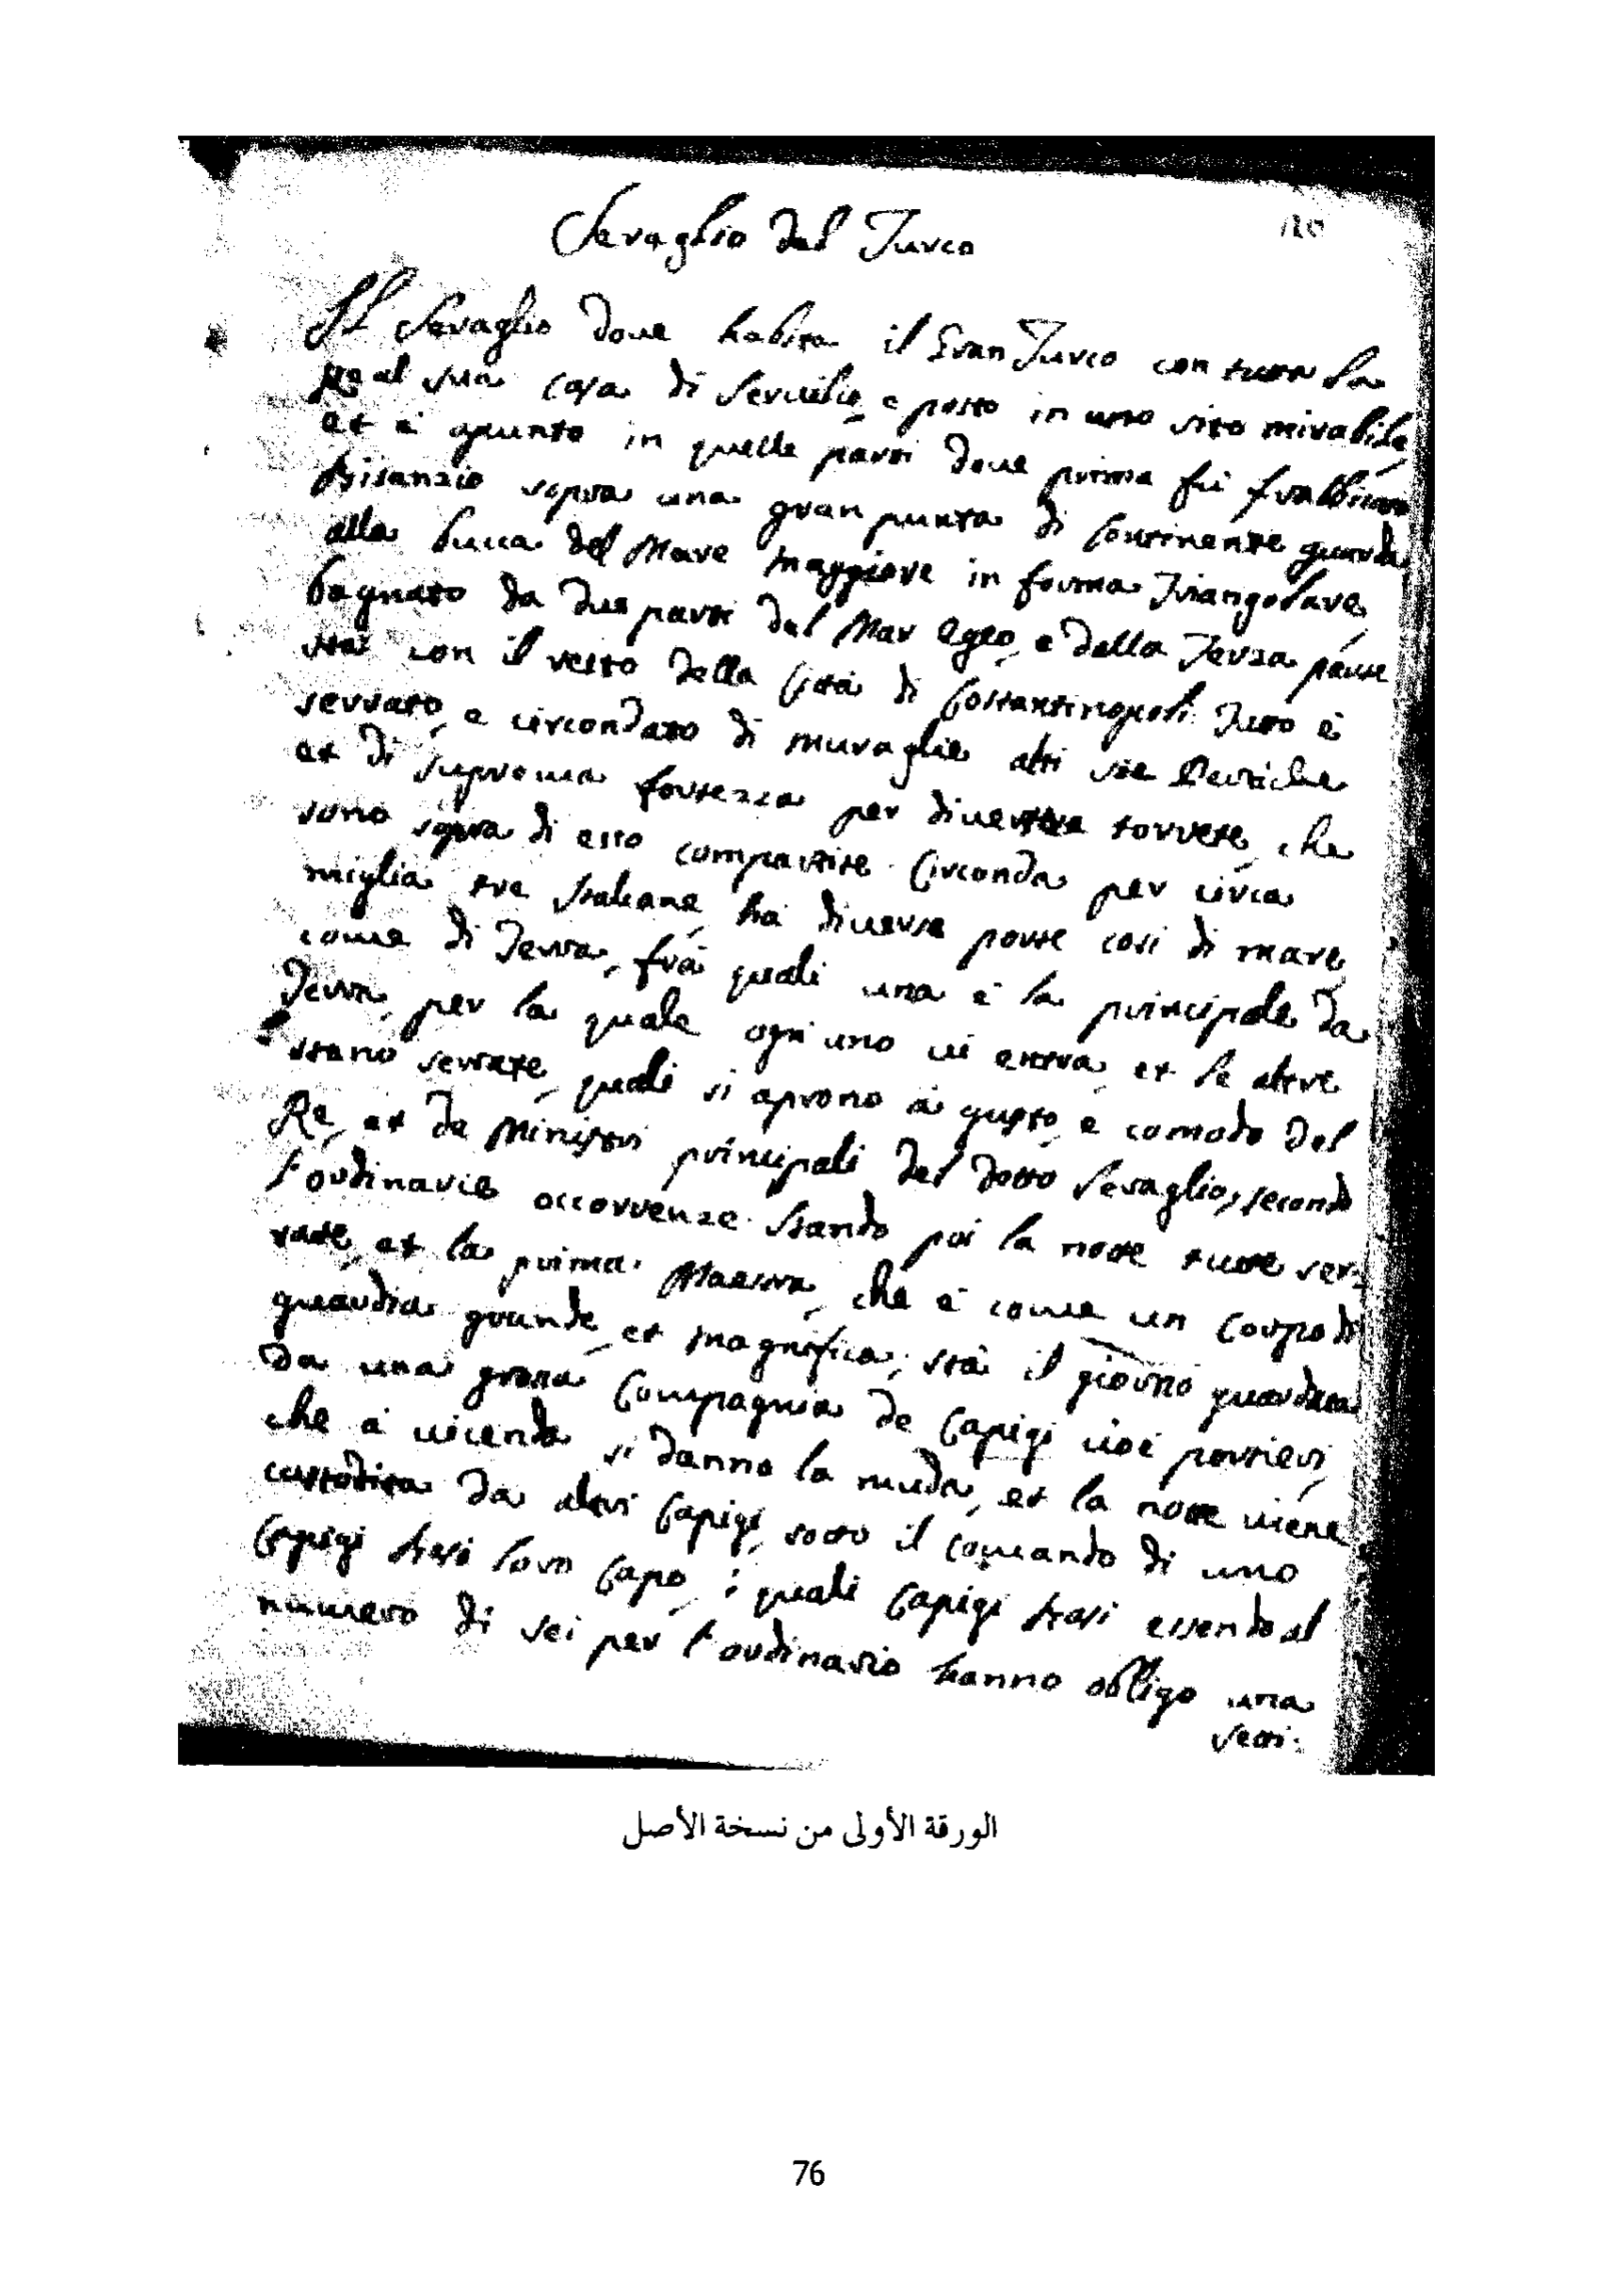 Seraglio del Turco
Il Seraglio doue habita il Gran Turco con tutta la
Real sua casa di Seruitio, e posto in uno sito mirabile,
et è apunto in quella parte doue prima fù
Bisanzio sopra una gran punta di Continente guarda
alla bucca del Mare Maggiore in forma Triangolare,
bagnato da due parti dal Mar Egeo, e dalla Terza parte
stà con il resto della Città di Costantinopoli. Tutto è
serrato, e circondato di muraglie
et di suprema fortezza per diuerse torrete, che
sono sopra di esso compartite. Circonda per circa
miglia tre Italiane, hà diuerse porte così di mare,
come di Terra, frà quali una è la principale da
Terra, per la quale ogni uno ui entra, et le altre
stano serrate, quali si aprono à gusto, e comodo del
Rè, et da Ministri principali del detto Seraglio, secondo
l'ordinarie occorrenze. Stando poi la notte tutte ser=
rate, et la prima Maestra, che è come un Corpo di
guardia grande, et magnifica, stà il giorno guardata
da una grossa Compagnia de Capigi cioè portieri,
che à uicenda si danno la muda, et la notte uiene
custodita da altri Capigi, sotto il comando di uno
Capigi basi loro Capo, i quali Capigi basi essendo al
numero di sei per l'ordinario hanno obligo una
setti.
الورقة الأولى من نسخة الأصل
76